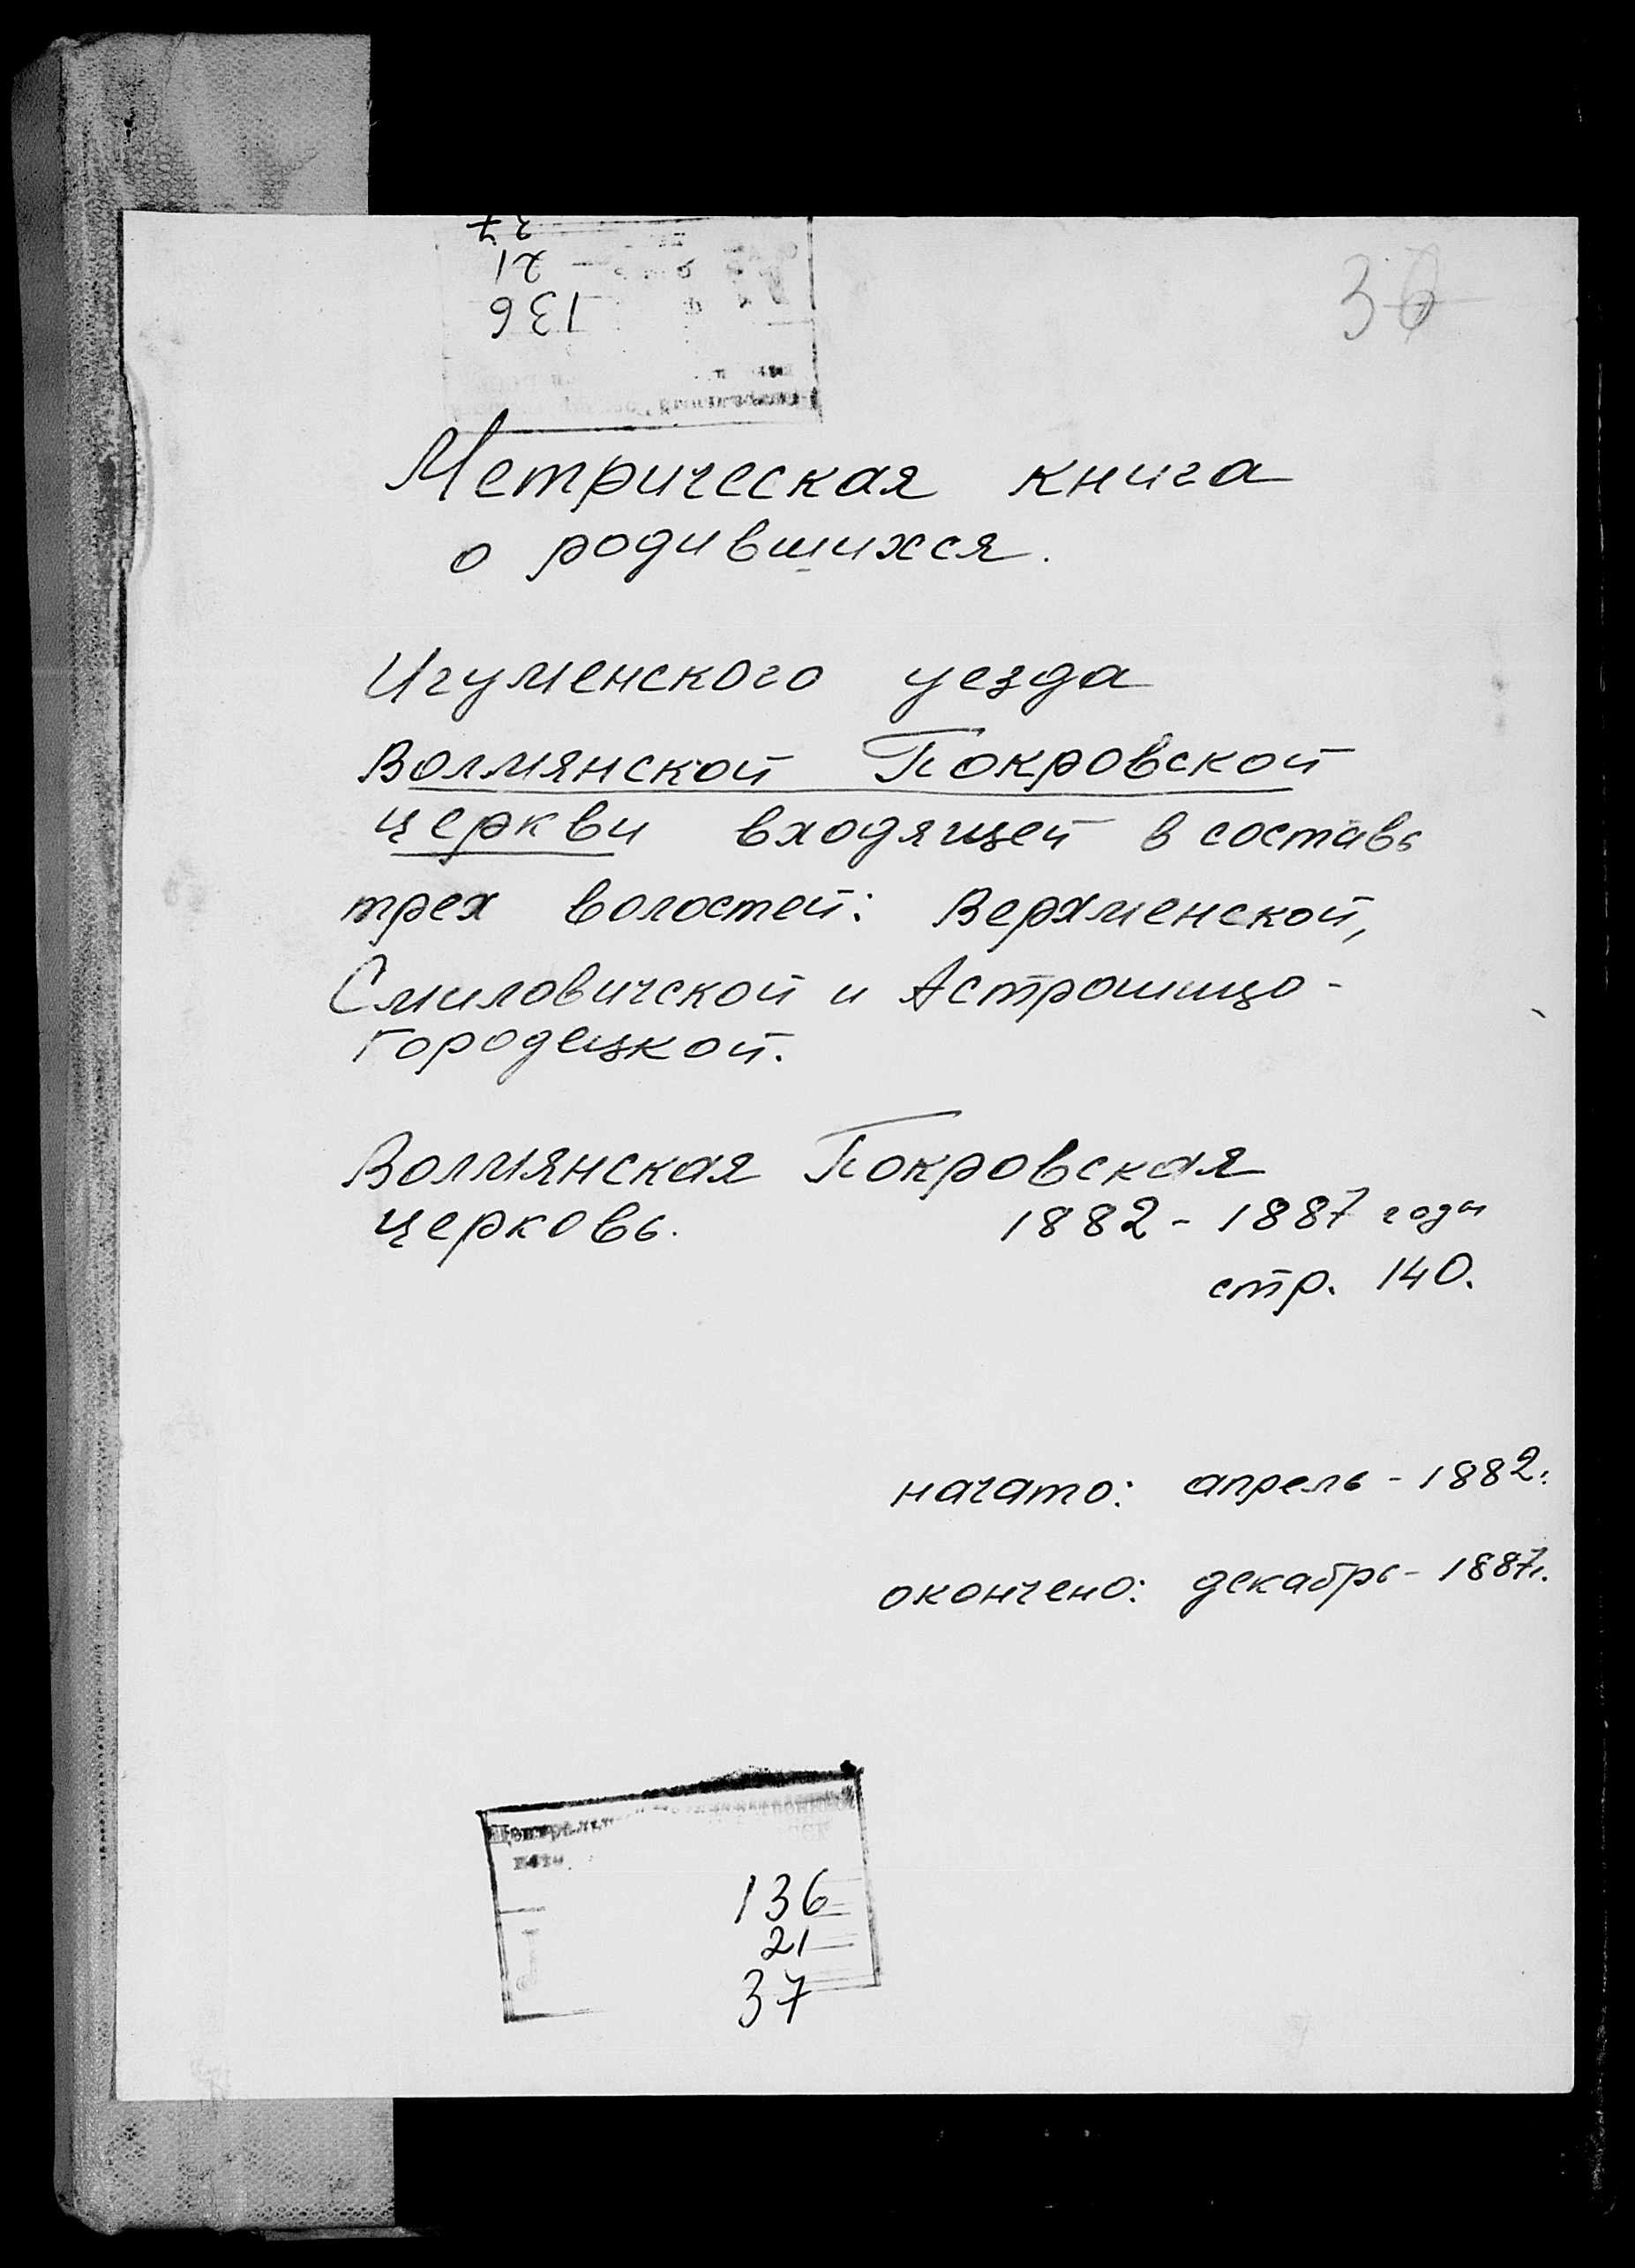 37
21
136
36
Метрическая книга
о родившихся.
Игуменского уезда
Волмянской Покровской
церкви входящей в составь
трех волостей: Верхменской,
Смиловичской и Астрошицо-
городецкой.
Волмянская Покровская
церковь.
1882 - 1887 годы
стр. 140.
начато: апрель - 1882г.
окончено: декабрь - 1887г.
136
21
37